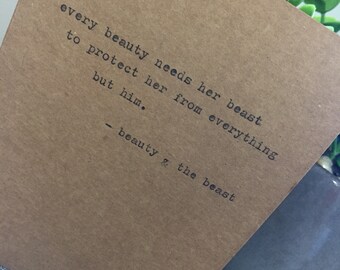 every beauty needs her beast
to protect her from everything
but him.
- beauty & the beast